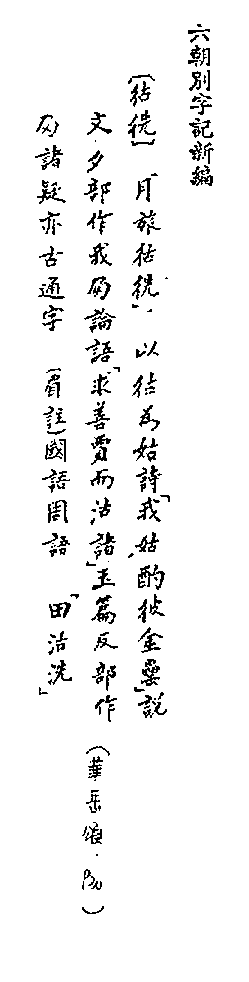 六朝別字記新編
〔秙㨘〕「月旅秙㨘」。以秙為姑詩「我姑酌彼金罍」説
文夕部作我夃論語「求善賈而沽諸」玉篇夃部作
夃諸疑亦古通字　(眉註)國語周語「田沽洗」
(華岳頌·周)